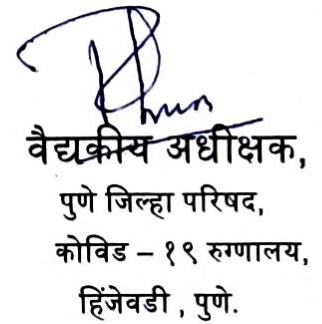 वैद्यकीय अधीक्षक,
पुणे जिल्हा परिषद,
कोविड – १९ रुग्णालय,
हिंजेवडी , पुणे.